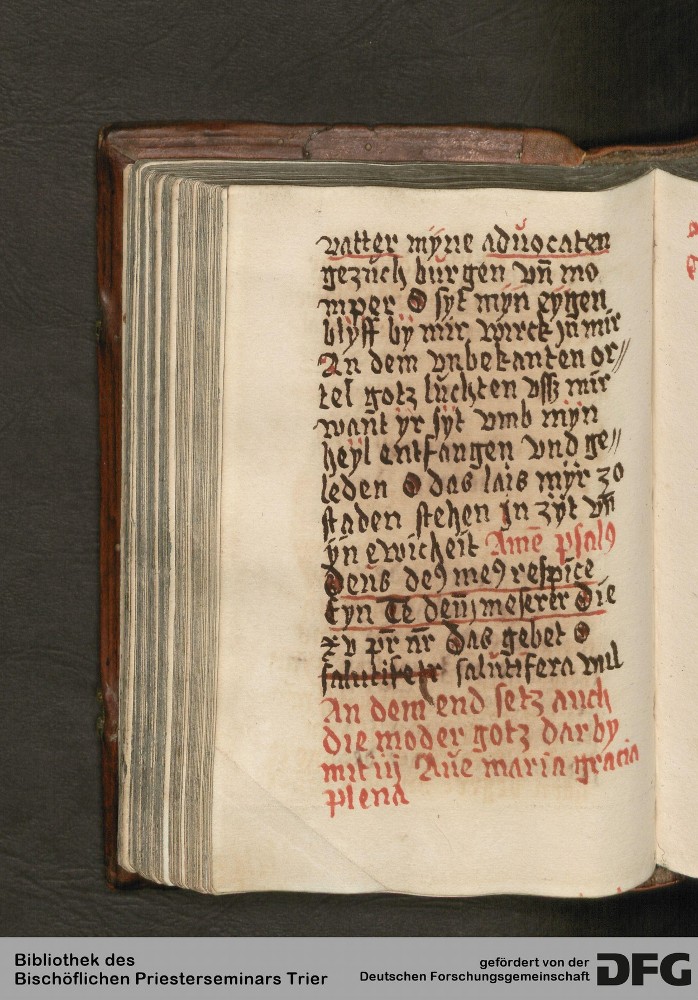 vatter myne aduocaten
gezuch burgen vn̄ mo
mper O syt myn eygen
blyff by mir wirck jn mir
An dem vnbekanten or//
tel gotz luchten vsß mir
want yr syt vmb myn
heyl entfangen vnd ge//
leden O das lais myr zo
staden stehen jn zyt vn̄
yn ewicheit Amē psalꝰ
Deus deꝰ meꝰ respice
Eyn Te deum meserer Die
xv pr̄ nr̄ Das gebet O
salutifera wil
An dem end setz auch
die moder gotz darby
mit iij Aue maria gracia
plena
Bibliothek des
Bischöflichen Priesterseminars Trier
gefördert von der
Deutschen Forschungsgemeinschaft DFG